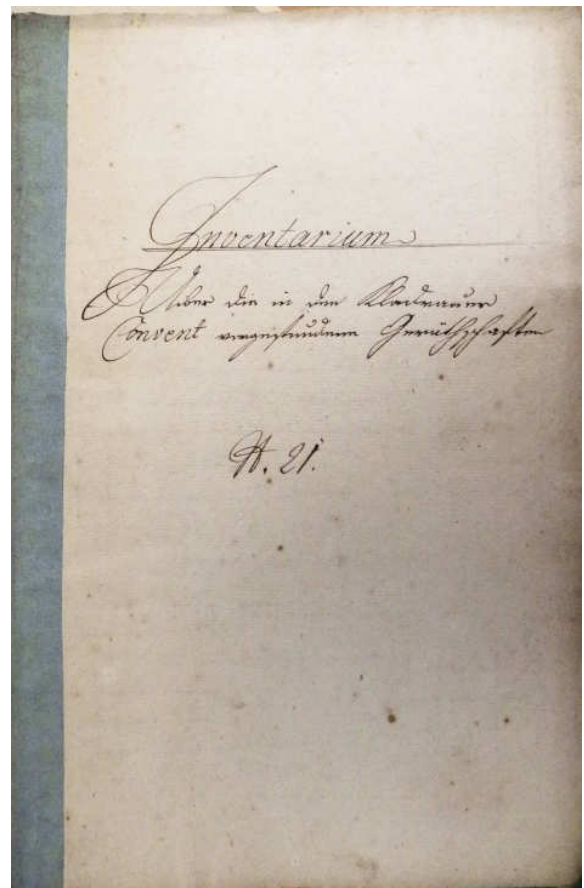 Inventarium
Über die in dem Kladrauer
Convent vorgefundenen Geräthschaften
N. 21.